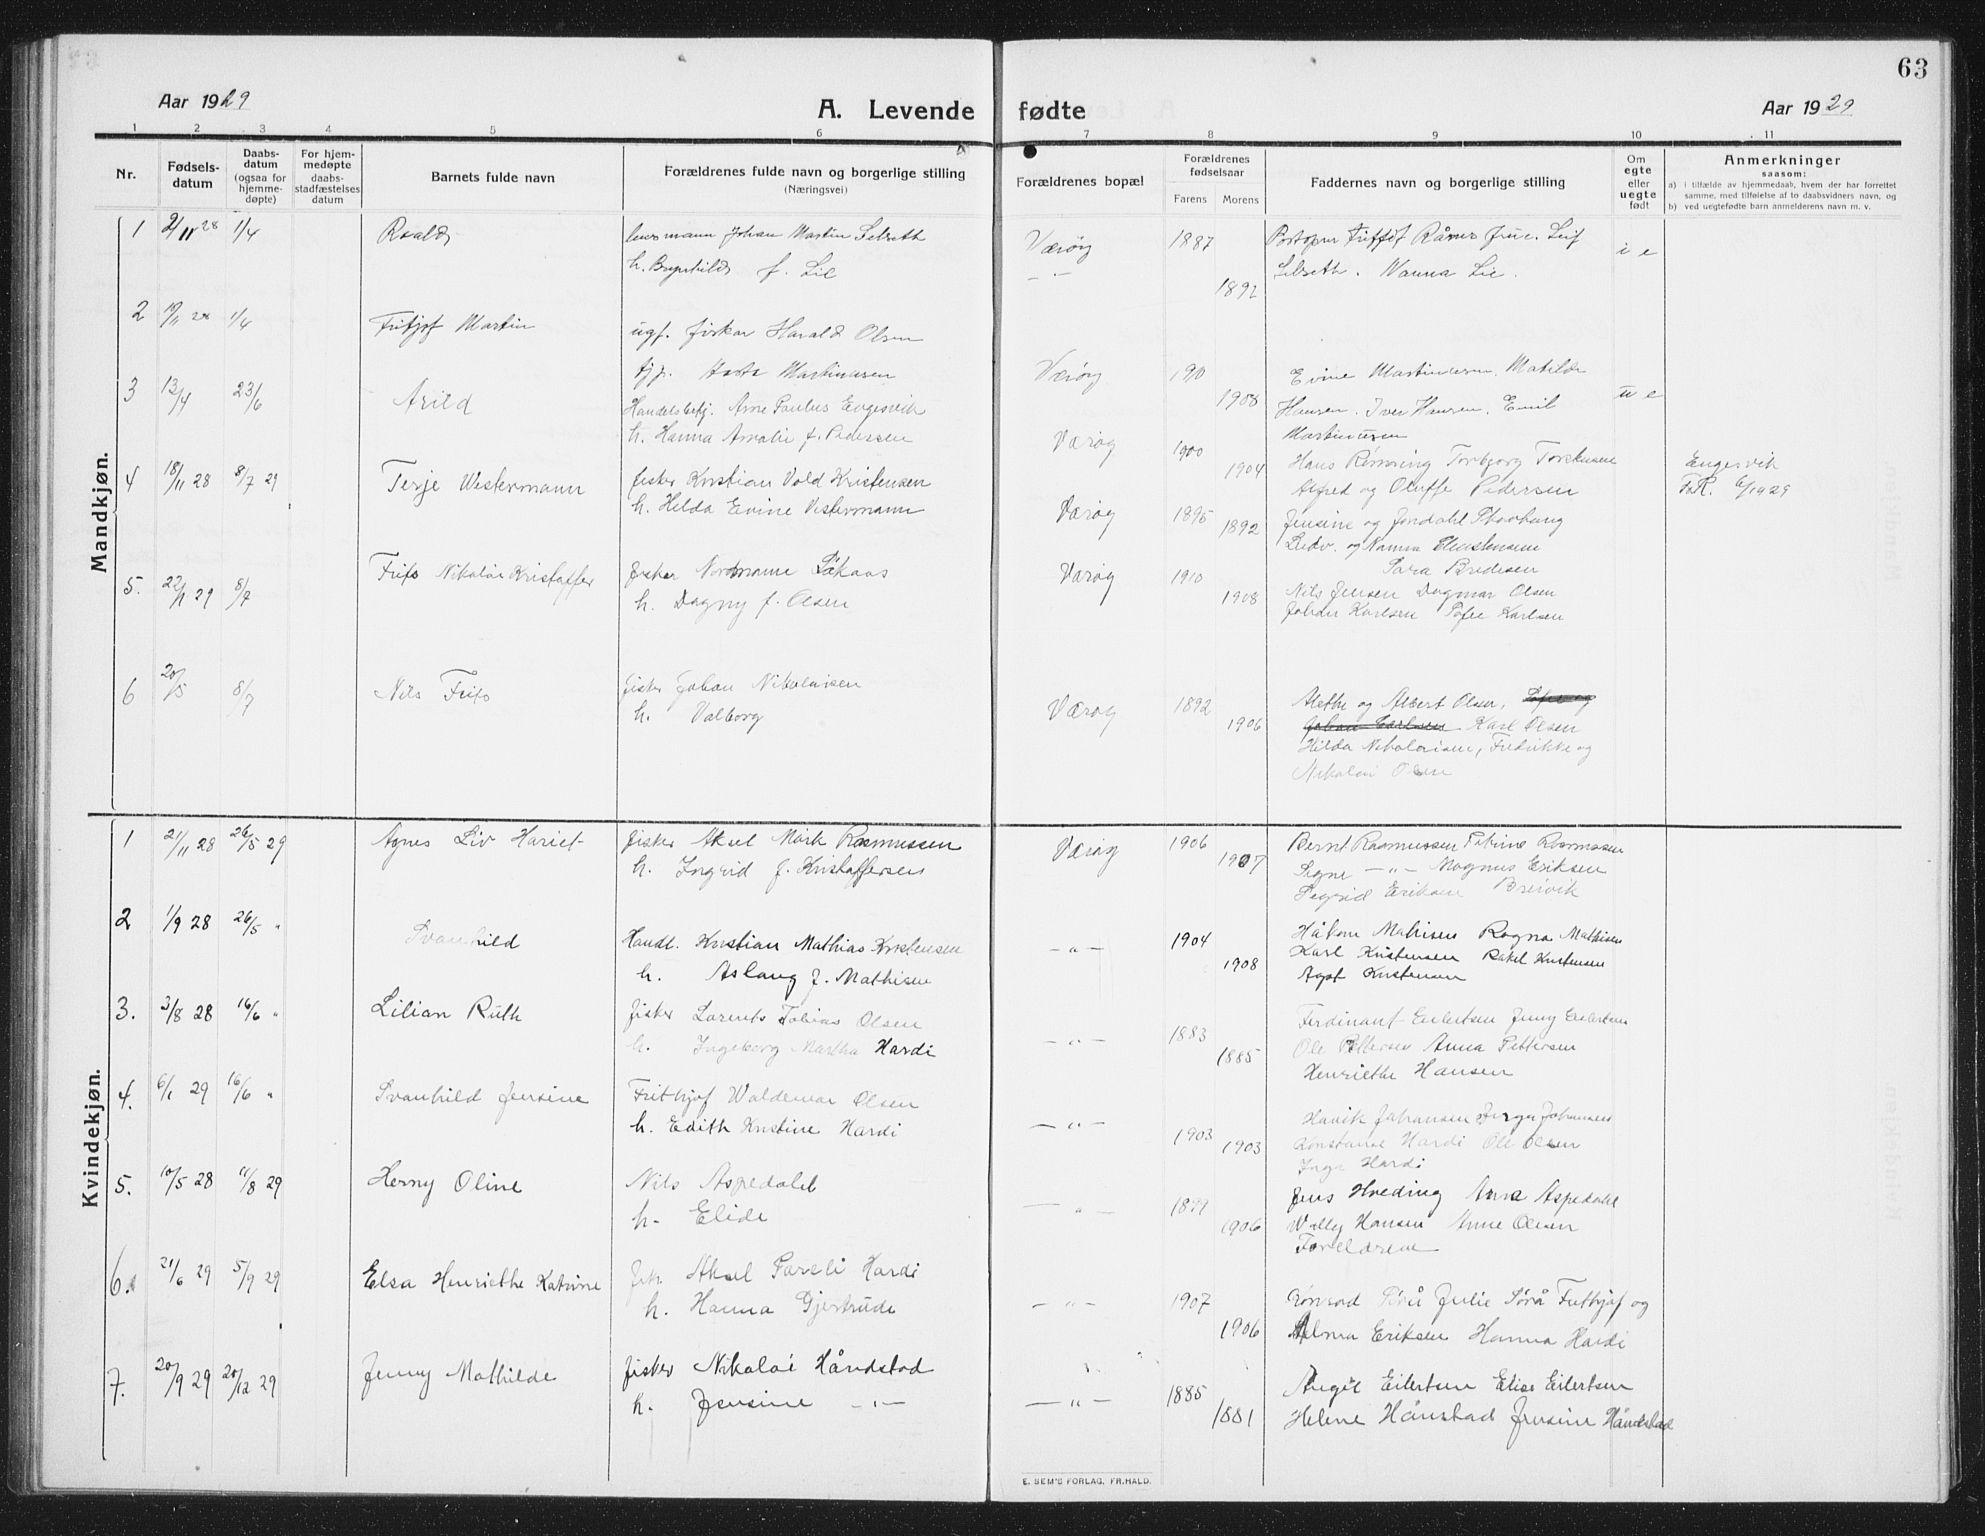 63
Aar 1929
A. Levende fødte
Aar 1929
1 2 3 4 5 6 7 8 9 10 11
Nr.
Fødsels-
datum
Daabs-
datum
(ogsaa for
hjemme-
døpte)
For hjem-
medøpte
daabs-
stadfæstelses
datum
Barnets fulde navn
Forældrenes fulde navn og borgerlige stilling
(Næringsvei)
Forældrenes bopæl
Forældrenes
fødselsaar
Farens Morens
Faddernes navn og borgerlige stilling
Om
egte
eller
uegte
født
Anmerkninger
saasom:
a) i tilfælde av hjemmedaab, hvem der har forrettet
samme, med tilføielse af to daabsvidners navn, og
b) ved uegtefødte barn anmelderens navn m. v.
Mandkjøn.
1 2/11 28 1/4 Roald lensmann Johan Martin Selseth Værøy 1887 Leif i e
h. Brynhild f. Lie - " - 1892 Selseth. Nanna Lie.
2 10/11 28 1/4 Fritjof Martin ugf. fisker Harald Olsen
Martinusen Værøy 1910 Evine Martinusen. Matilde
1908 Hansen. Iver Hansen. Emil u e
Martinusen
3 13/4 23/6 Arild Handelsbetj. Arne Paulus Engesvik Værøy 1900 Hans Rønning Torbjørg
h. Hanna Amalie f. Pedersen 1904 Alfred og Oluffe Pedersen Engesvik
4 18/11 28 8/7 29 Terje Westermann fisker Kristian Vold Kristensen Værøy 1895 Jensine og
h. Helda Evine Vestermann 1892 og Nanna
5. 22/1 29 8/7 Frits Nikolai Kristoffer fisker Normann Værøy 1910 Sara Bredesen
h. Dagny f. Olsen 1908 Nils Jensen Dagmar Olsen
Johan Karlsen Karlsen
6 20/5 8/7 Nils Frits fisker Johan Nikolaisen Værøy 1892 Alethe og Albert Olsen,
h. Valborg 1906 Karl Olsen
Hilda Nikolaisen, Fredrikke og
Nikolai Olsen
Kvindekjøn.
1 21/11 28 26/5 29 Agnes Liv Hariet fisker Aksel Mørk Rasmussen Værøy 1906 Bernt Rasmussen Petrine Rasmussen
h. Ingrid f. Kristoffersen 1907 Signe - " - Magnus Eriksen
Sigrid Eriksen Breivik
2 1/9 28 26/5 " Svanhild Handl. Kristian Mathias Kristensen - " - 1904 Håkon Mathisen Ragna Mathisen
h. Aslaug f. Mathisen 1908 Karl Kristensen Rakel Kristensen
Agot Kristensen
3. 3/8 28 16/6 " Lilian Ruth fisker Lorents Tobias Olsen - " - 1883 Ferdinant Eilertsen Jenny Eilertsen
h. Ingeborg Martha Hardi 1885 Ole Pettersen Anna Pettersen
Henriethe Hansen
4. 6/1 29 16/6 " Svanhild Jensine Frithjof Waldemar Olsen - " - 1903 Havik Johansen Johansen
h. Edith Kristine Hardi 1903 Konstanse Hardi Ole Olsen
Inga Hardi
5. 10/5 28 11/8 29 Herny Oline Nils Aspedahl - " - 1899 Jens Hveding Anna Aspedahl
h. Elide 1906 Willy Hansen Anne Olsen
Foreldrene
6. 21/6 29 5/9 29 Elsa Henriethe Katrine fisk. Aksel Pareli Hardi - " - 1907 Konrad Sørå Julie Sørå Frithjof og
h. Hanna Gjertrude 1906 Alma Eriksen Hanna Hardi
7. 20/9 29 20/12 29 Jenny Mathilde fisker Nikolai Håndstad - " - 1885 Angel Eilertsen Elise Eilertsen
h. Jensine - " - 1881 Helene Hånstad Jensine Håndstad
E. SEM'S FORLAG, FR.HALD.